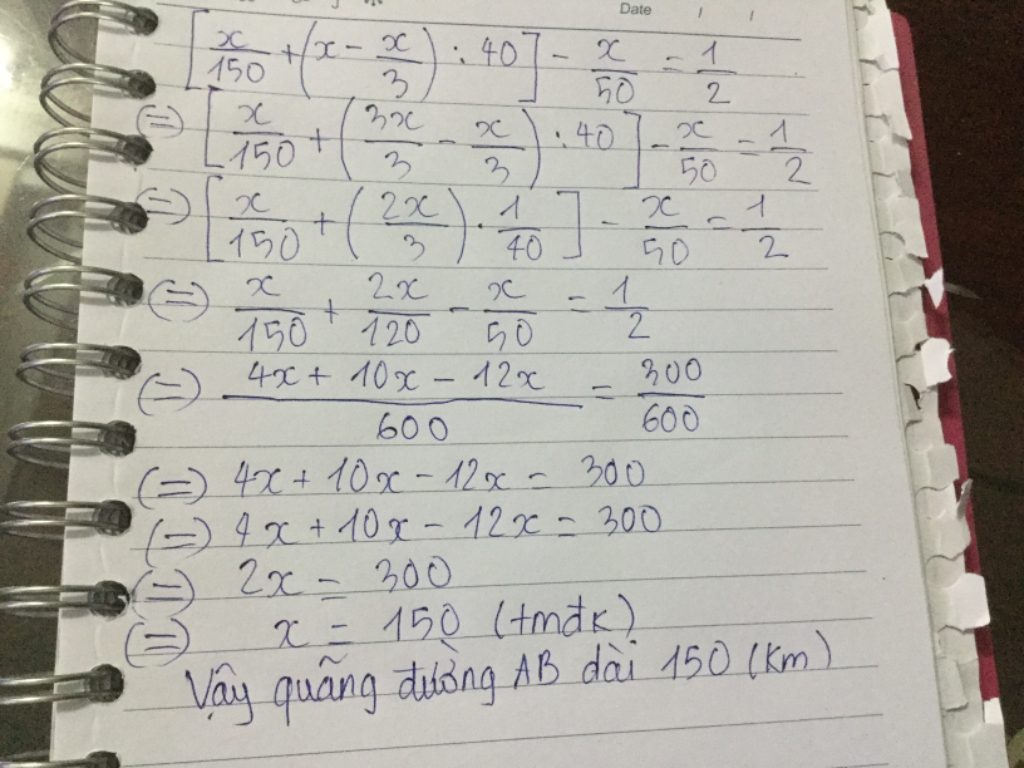 Date / /
[x/150 + (x - x/3) : 40] - x/50 = 1/2
(=) [x/150 + (3x/3 - x/3) : 40] - x/50 = 1/2
(=) [x/150 + (2x/3) . 1/40] - x/50 = 1/2
(=) x/150 + 2x/120 - x/50 = 1/2
(=) (4x + 10x - 12x)/600 = 300/600
(=) 4x + 10x - 12x = 300
(=) 4x + 10x - 12x = 300
(=) 2x = 300
(=) x = 150 (tmđk)
Vậy quãng đường AB dài 150 (km)